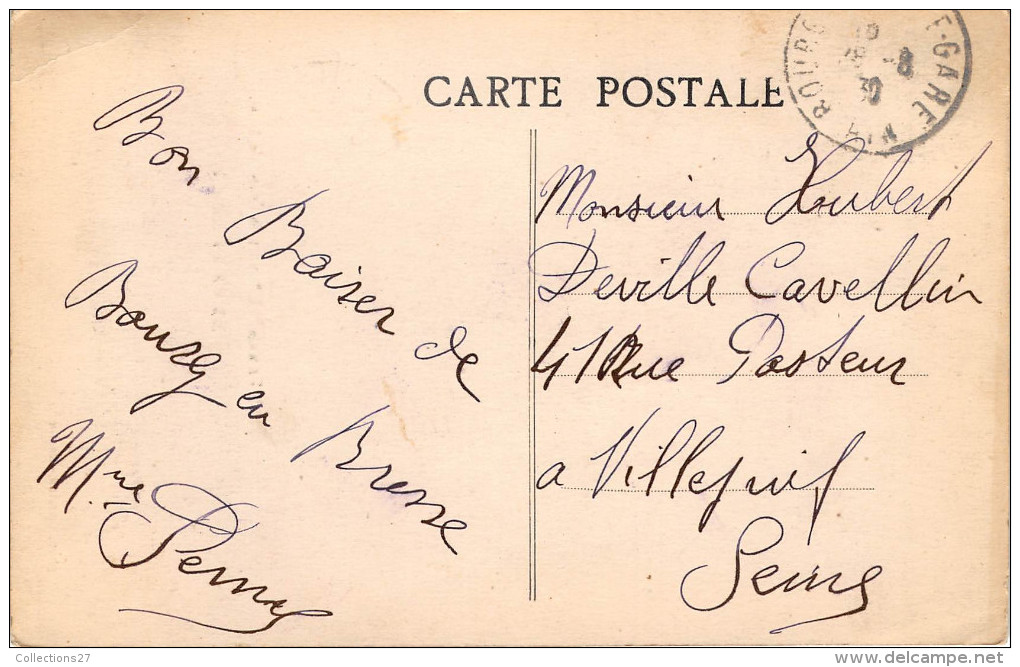 CARTE POSTALE
BOURG GARE
18
8
30
Bon Baiser de
Bourg en Bresse
Mme
Monsieur Hubert
Deville Cavellin
41 Rue Pasteur
a Villejuif
Seine
Collections27
www.delcampe.net